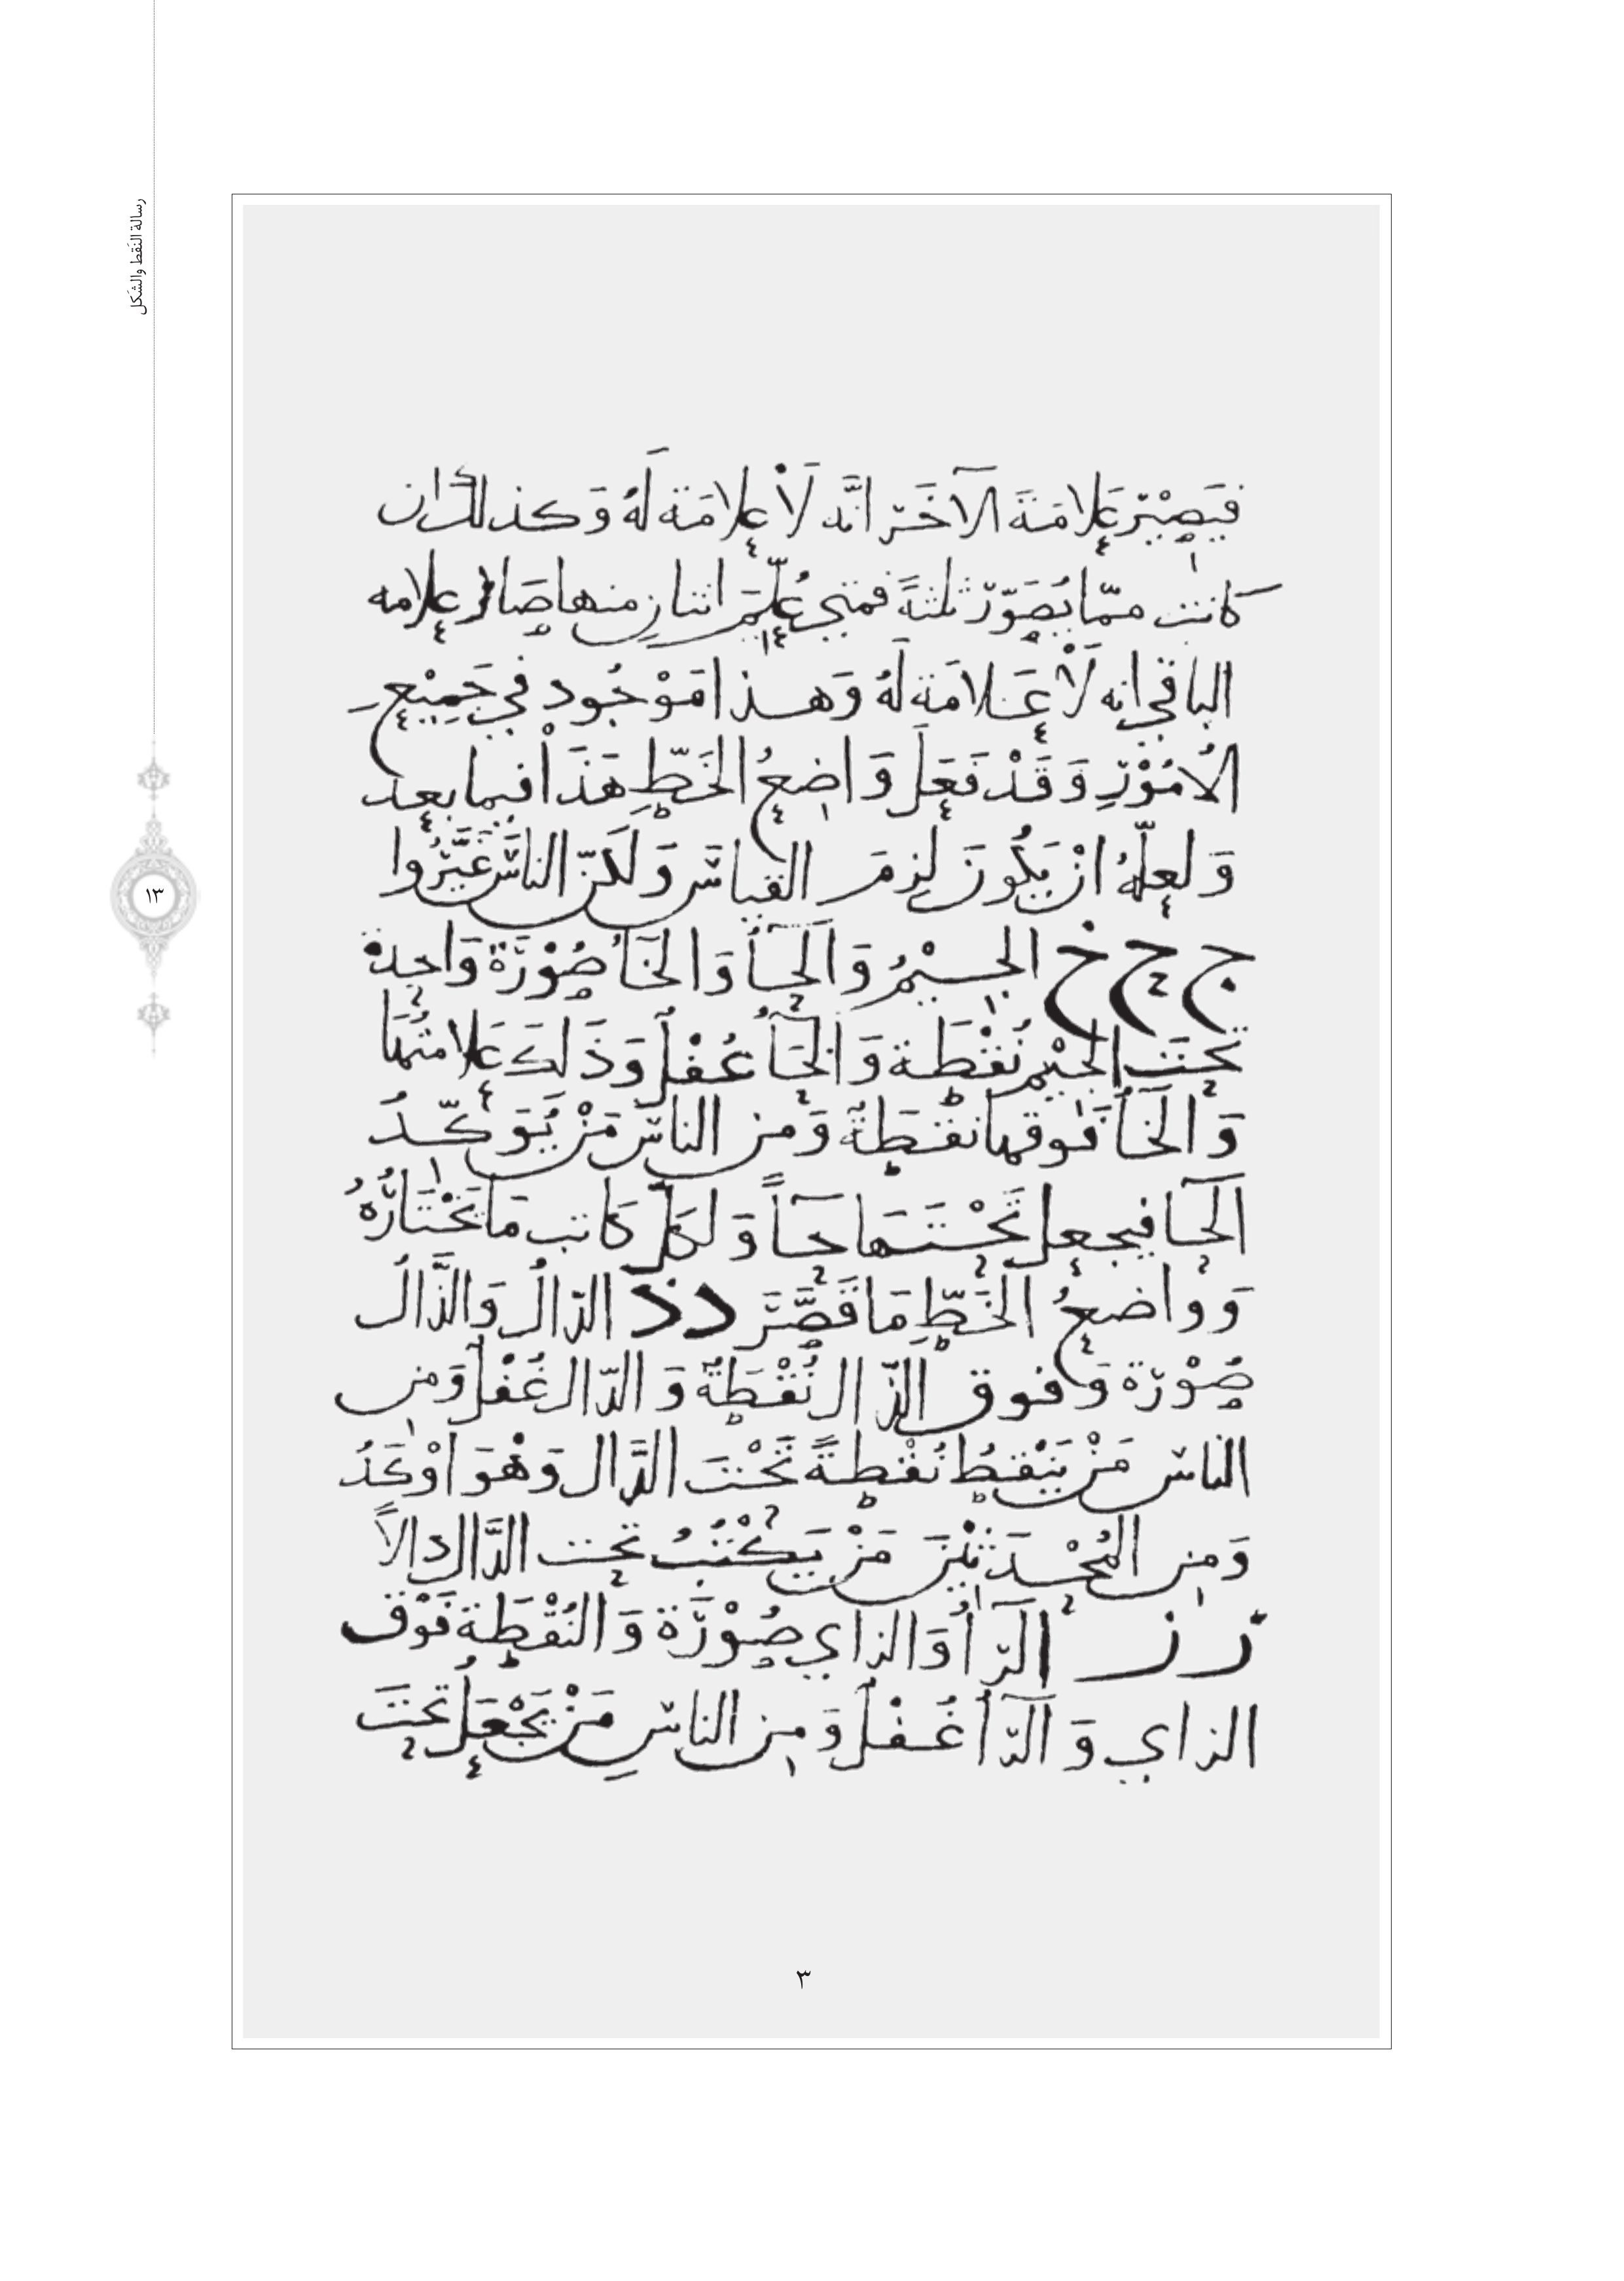 رسالة النقط والشكل
١٣
فَيَصِيْرَ عَلامَةَ الآخَرِ انَّه لَاْ علامَة لَهُ وَكذلك ان
كانت ممّا يُصَوّر ثلثةً فمتى عُلِّمَ اثنان منها صَار علامه
الباقي انه لَاْ عَلامَة لَهُ وَهذا مَوْجُود في جَمِيْعِ
الامُوْرِ وَقَدْ فَعَلَ وَاضعُ الخَطِّ هَذَاْ فيما بعد
وَلعلّهُ انْ يَكُونَ لزمَ القياسَ وَلَكنّ الناسَ غَيَّرُوا
ج ح خ الجيْمُ وَالحَاُ وَالخَاُ صُوْرَة وَاحِدة
تحتَ الجيْمِ نُقْطَة وَالحَاُ غُفْلُ وَذَلكَ عَلامتُهَا
وَالخَاُ فَوقها نقطَةٌ وَمن الناسِ مَنْ يُوَكّدُ
الحَا فيجعل تَحْتَهَا حَاً وَلكلّ كَاتب مَا يَخْتَارُهُ
وَوَاضعُ الخَطِّ مَا قَصَّرَ د ذ الدّالُ وَالذَّالُ
صُوْرَة وَفوق الذّال نُقْطَةٌ وَالدّال غُفْلُ وَمن
الناس مَنْ يَنْقطُ نُقْطةً تَحْتَ الدَّال وَهُوَ اوْكَدُ
وَمن المُحْدَثيْنَ مَنْ يَكْتُبُ تحت الدَّال دالاً
ر ز الرّاُ وَالزاي صُوْرَة وَالنُقْطَة فَوْقَ
الزاي وَالرّاُ غُفْلُ وَمن الناسِ مَنْ يَجْعَلُ تحتَ
٣